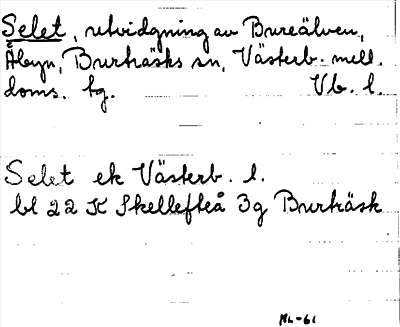 Selet, utvidgning av Bureälven,
Åbyn, Burträsks sn, Västerb. mell.
doms. tg. Vb. l.
Selet ek Västerb. l.
bl 22 K Skellefteå 3g Burträsk